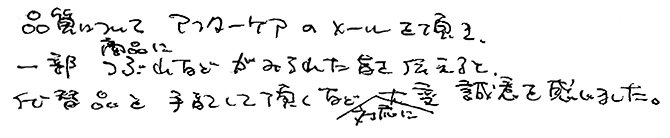 品質について アフターケアのメールを頂き、
一部 商品に つぶれなどがみられた旨を伝えると、
代替品を手配して頂くなど 対応に 大変 誠意を感じました。